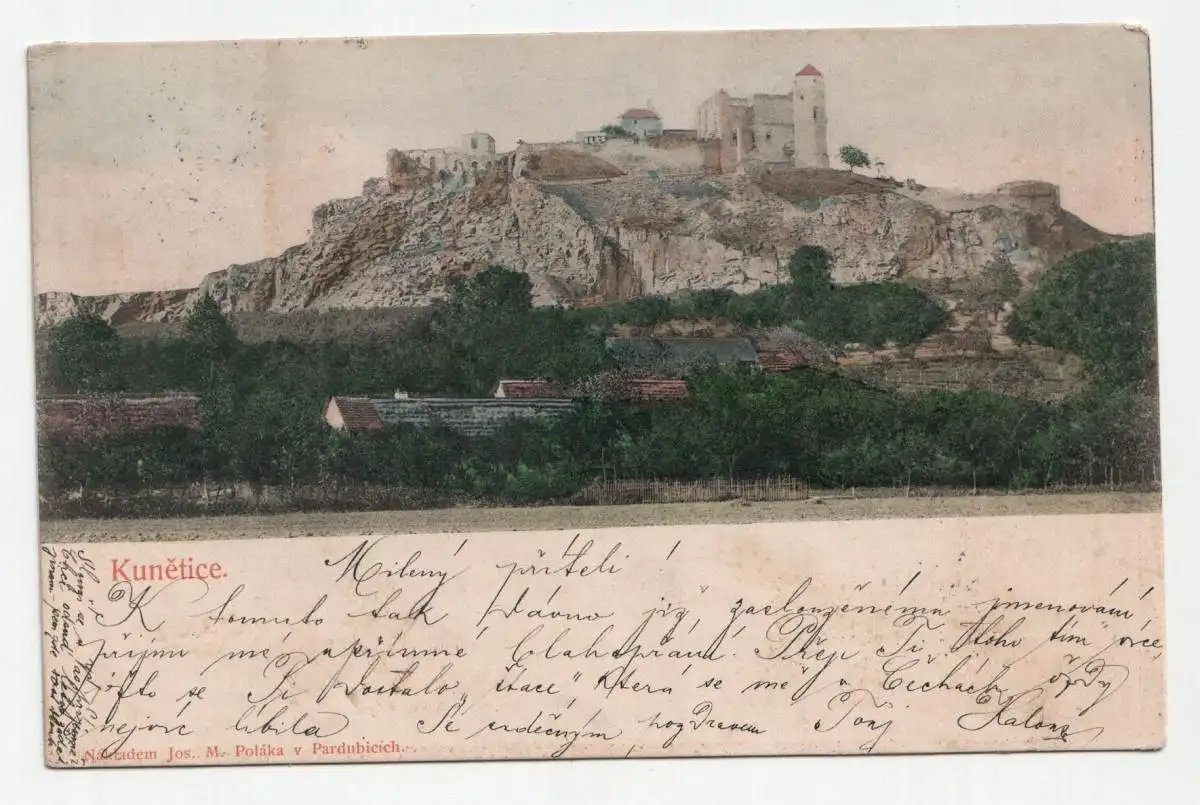 Kunětice.
Milený příteli!
K tomuto tak dávno již zaslouženému jmenování
přijmi mé upřímné blahopřání. Přeji Ti toho tím více,
ješto se Ti dostalo "štace", která se mě v Čechách vždy
nejvíc líbila Se srdečným pozdravem Tvůj
Nákladem Jos. M. Poláka v Pardubicích.